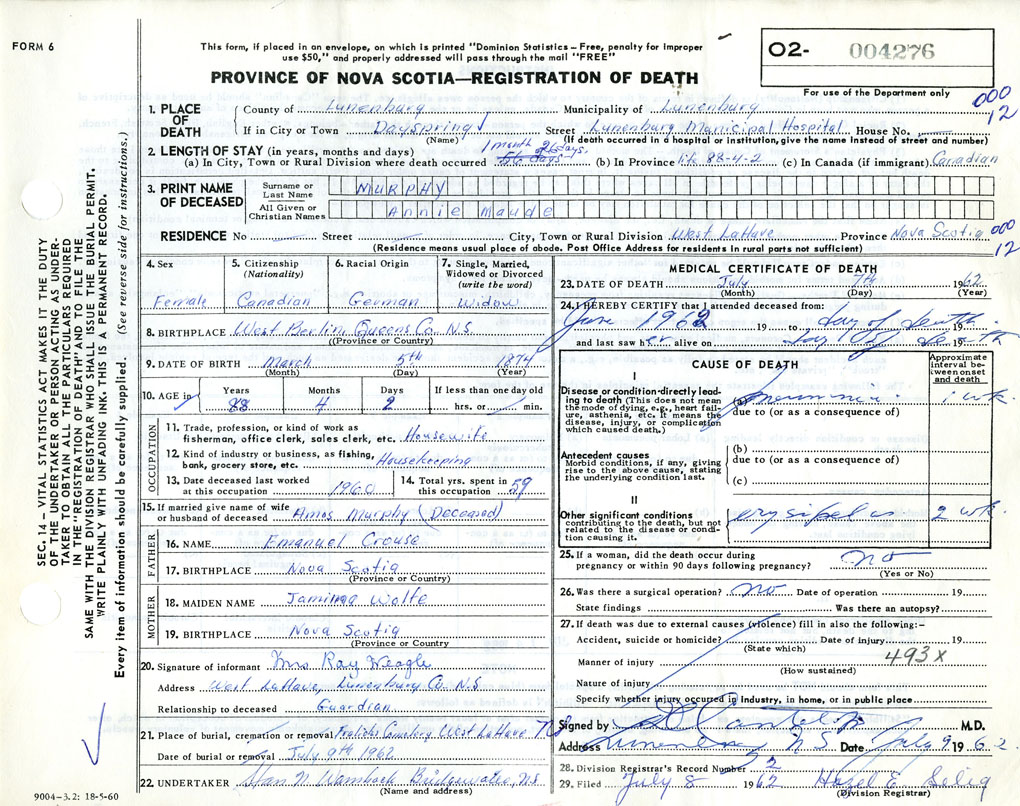 FORM 6
This form, if placed in an envelope, on which is printed "Dominion Statistics – Free, penalty for improper
use $50," and properly addressed will pass through the mail "FREE"
PROVINCE OF NOVA SCOTIA—REGISTRATION OF DEATH
O2- 004276
For use of the Department only
000
12
1. PLACE OF DEATH
County of Lunenburg Municipality of Lunenburg
If in City or Town Dayspring Street Lunenburg Municipal Hospital House No.
(Name) (If death occurred in a hospital or institution, give name instead of street and number)
2. LENGTH OF STAY (in years, months and days) 1 month 26 days.
(a) In City, Town or Rural Division where death occurred 56 days (b) In Province life 88-4-2 (c) In Canada (if immigrant) Canadian
3. PRINT NAME OF DECEASED
Surname or Last Name MURPHY
All Given or Christian Names Annie Maude
RESIDENCE No Street City, Town or Rural Division West LaHave Province Nova Scotia
000
12
(Residence means usual place of abode. Post Office Address for residents in rural parts not sufficient)
4. Sex
Female
5. Citizenship
(Nationality)
Canadian
6. Racial Origin
German
7. Single, Married,
Widowed or Divorced
(write the word)
Widow
8. BIRTHPLACE West Berlin Queens Co N.S.
((Province or Country)
9. DATE OF BIRTH March 5th 1874
(Month) (Day) (Year)
10. AGE in
Years Months Days If less than one day old
88 4 2 hrs. or min.
OCCUPATION
11. Trade, profession, or kind of work as
fisherman, office clerk, sales clerk, etc. Housewife
12. Kind of industry or business, as fishing,
bank, grocery store, etc. Housekeeping
13. Date deceased last worked
at this occupation 1960
14. Total yrs. spent in
this occupation 59
15. If married give name of wife
or husband of deceased Amos Murphy (Deceased)
FATHER
16. NAME Emanuel Crouse
17. BIRTHPLACE Nova Scotia
(Province or Country)
MOTHER
18. MAIDEN NAME Jamima Wolfe
19. BIRTHPLACE Nova Scotia
(Province or Country
20. Signature of informant Mrs Ray Weagle
Address West LaHave, Lunenburg Co N.S
Relationship to deceased Guardian
21. Place of burial, cremation or removal Cemetery West LaHave N.S
Date of burial or removal July 9th 1962
22. UNDERTAKER Bridgewater, N.S
(Name and address)
9004-3.2: 18-5-60
MEDICAL CERTIFICATE OF DEATH
23. DATE OF DEATH July 7th 1962
(Month) (Day) (Year)
24. I HEREBY CERTIFY that I attended deceased from:
June 1962 19 to day of death 19
and last saw her alive on day of death 19
CAUSE OF DEATH
Approximate
interval be-
tween onset
and death
I
Disease or condition directly lead-
ing to death (This does not mean
the mode of dying, e.g., heart fail-
ure, asthenia, etc. It means the
disease, injury, or complication
which caused death.)
(a) pneumonia 1 wk.
due to (or as a consequence of)
Antecedent causes
Morbid conditions, if any, giving
rise to the above cause, stating
the underlying condition last.
(b)
due to (or as a consequence of)
(c)
II
Other significant conditions
contributing to the death, but not
related to the disease or condi-
tion causing it.
erysipelas 2 wk.
25. If a woman, did the death occur during
pregnancy or within 90 days following pregnancy? no
(Yes or No)
26. Was there a surgical operation? no Date of operation 19
State findings Was there an autopsy?
27. If death was due to external causes (violence) fill in also the following:-
Accident, suicide or homicide? Date of injury 19
(State which)
493X
Manner of injury
(How sustained)
Nature of injury
Specify whether injury occurred in industry, in home, or in public place
Signed by M.D.
Address Lunenburg N S Date July 9 1962
28. Division Registrar's Record Number 32
29. Filed July 8 1962 Hazel E. Selig
(Division Registrar)
SEC. 14—VITAL STATISTICS ACT MAKES IT THE DUTY
OF THE UNDERTAKER OR PERSON ACTING AS UNDER-
TAKER TO OBTAIN ALL THE PARTICULARS REQUIRED
IN THE "REGISTRATION OF DEATH" AND TO FILE THE
SAME WITH THE DIVISION REGISTRAR WHO SHALL ISSUE THE BURIAL PERMIT.
WRITE PLAINLY WITH UNFADING INK. THIS IS A PERMANENT RECORD.
Every item of information should be carefully supplied. (See reverse side for instructions.)